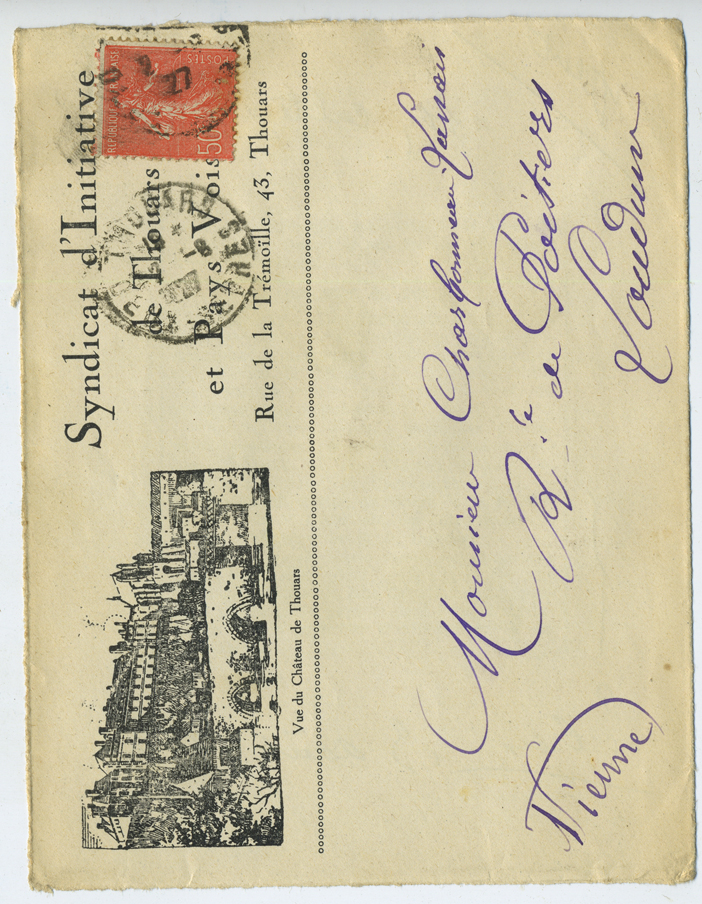 Syndicat d'Initiative
de Thouars
et Pays Vois
Rue de la Trémoïlle, 43, Thouars
Vue du Château de Thouars
POSTES
50
27
THOUARS
Monsieur Charbonneau
Rte de Poitiers
Loudun
Vienne